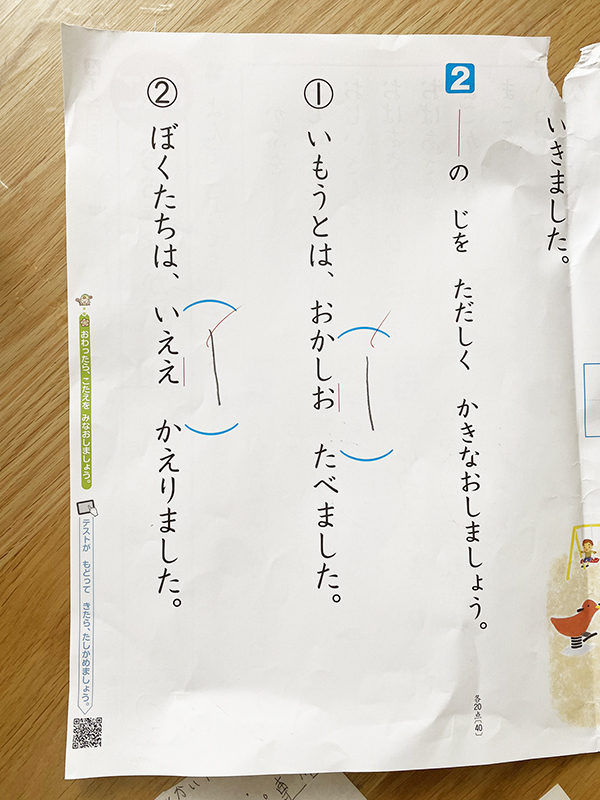 いきました。
2
―の じを ただしく かきなおしましょう。
各20点〔40〕
① いもうとは、おかしお たべました。
② ぼくたちは、いええ かえりました。
おわったら、こたえを みなおしましょう。
テストが もどって きたら、たしかめましょう。